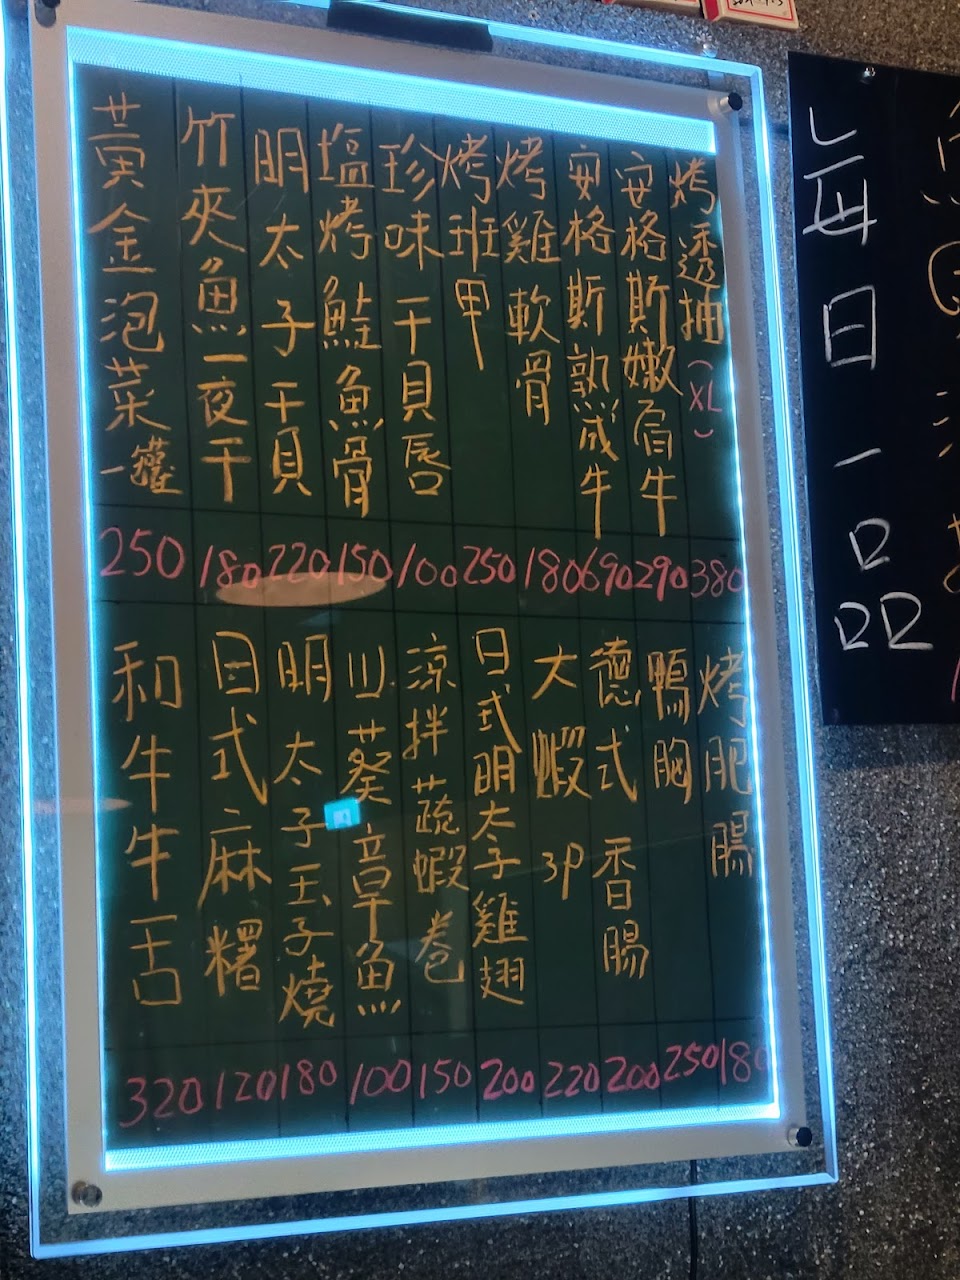 烤透抽(XL)
380
安格斯嫩肩牛
290
安格斯熟成牛
690
烤雞軟骨
180
烤班甲
250
珍味干貝唇
100
塩烤鮭魚骨
150
明太子干貝
220
竹夾魚一夜干
180
黃金泡菜一罐
250
烤肥腸
180
鴨胸
250
德式香腸
200
大蝦3P
220
日式明太子雞翅
200
涼拌蔬蝦卷
150
川葵章魚
100
明太子玉子燒
180
日式麻糬
120
和牛牛舌
320
每日一品